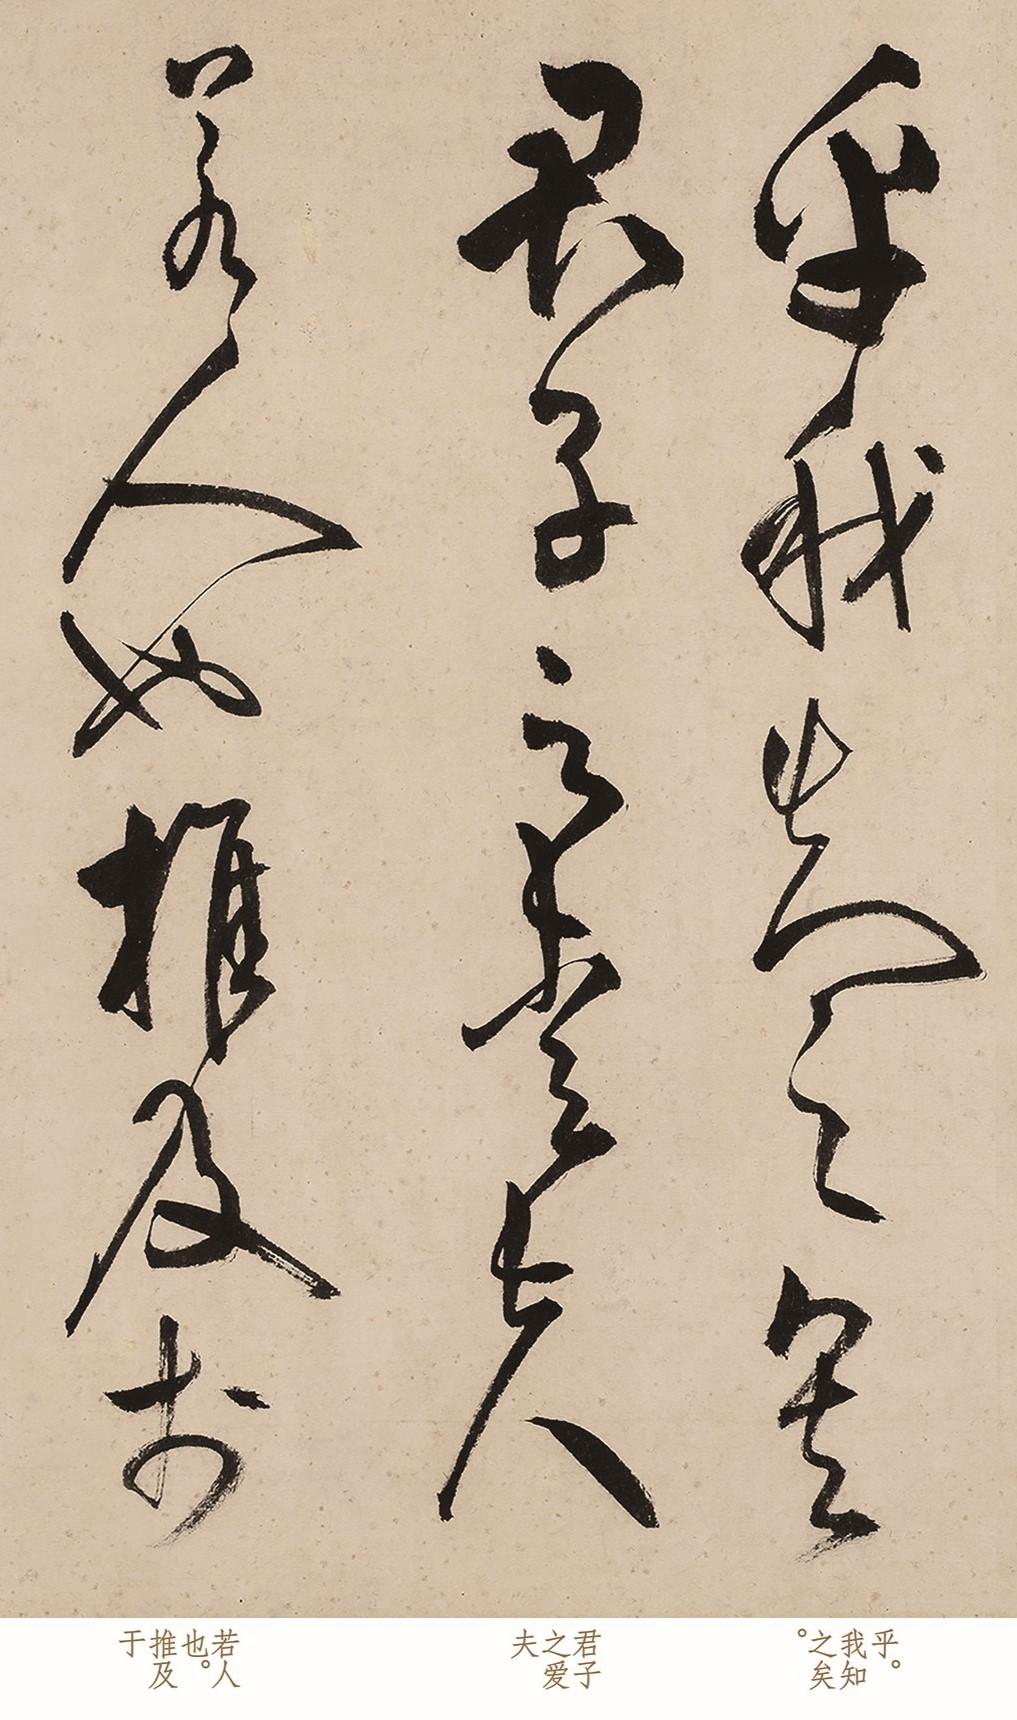 乎我知之矣
君子之愛夫
若人也推及於
乎。
我知
之矣
。
君子
之爱
夫
若人
也。
推及
于